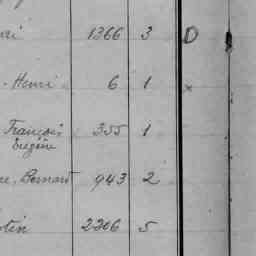 1366 3 D
- Henri 6 1 x
François 355 1
Eugène
re, Bernard 943 2
tin 2206 5